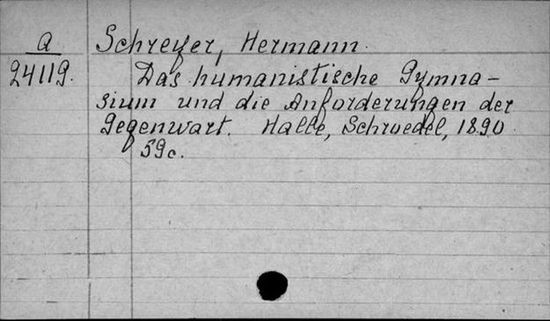 A Schreyer, Hermann.
24119. Das humanistische Gymna-
sium und die Anforderungen der
Gegenwart. Halle, Schroedel, 1890
59c.